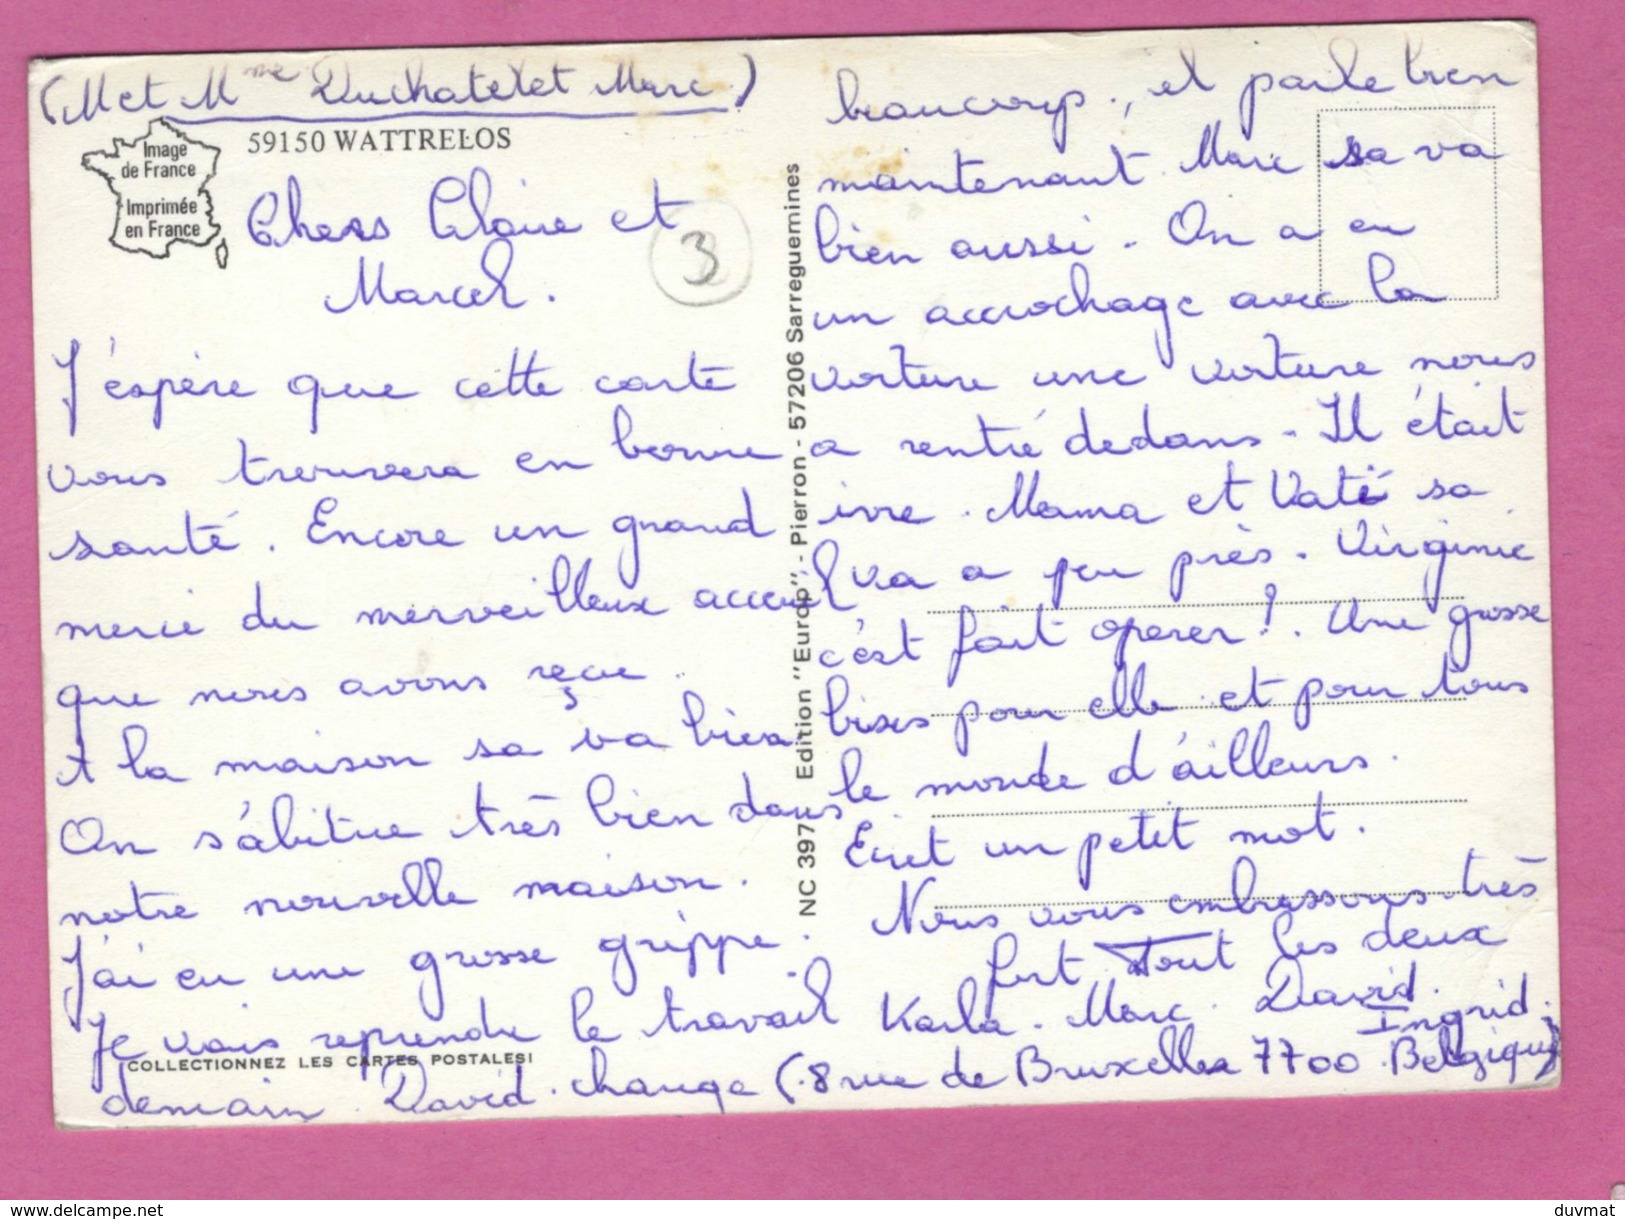 (M et Mme Duchatelet Marc)
Image
de France
Imprimée
en France
59150 WATTRELOS
Chers Claire et
Marcel.
3
J'éspère que cette carte
vous trouvera en bonne
santé. Encore un grand
merci du merveilleux acceuil
que nous avons reçue.
A la maison sa va bien
On s'abitue très bien dans
notre nouvelle maison.
J'ai eu une grosse grippe.
Je vais reprendre le travail
COLLECTIONNEZ LES CARTES POSTALES!
demain. David. change
NC 397 Edition "Europ" - Pierron - 57206 Sarreguemines
beaucoup, et parle bien
maintenant. Marc sa va
bien aussi. On a eu
un accrochage avec la
voiture une voiture nous
a rentré dedans. Il était
ivre. Mama et Vati sa
va a peu près. Virginie
c'est fait operer!. Une grosse
bises pour elle et pour tous
le monde d'ailleurs.
Ecrit un petit mot.
Nous vous embrassons très
fort. Tout les deux
Karla. Marc. David.
Ingrid.
(8 rue de Bruxelles 7700 Belgique)
www.delcampe.net
duvmat